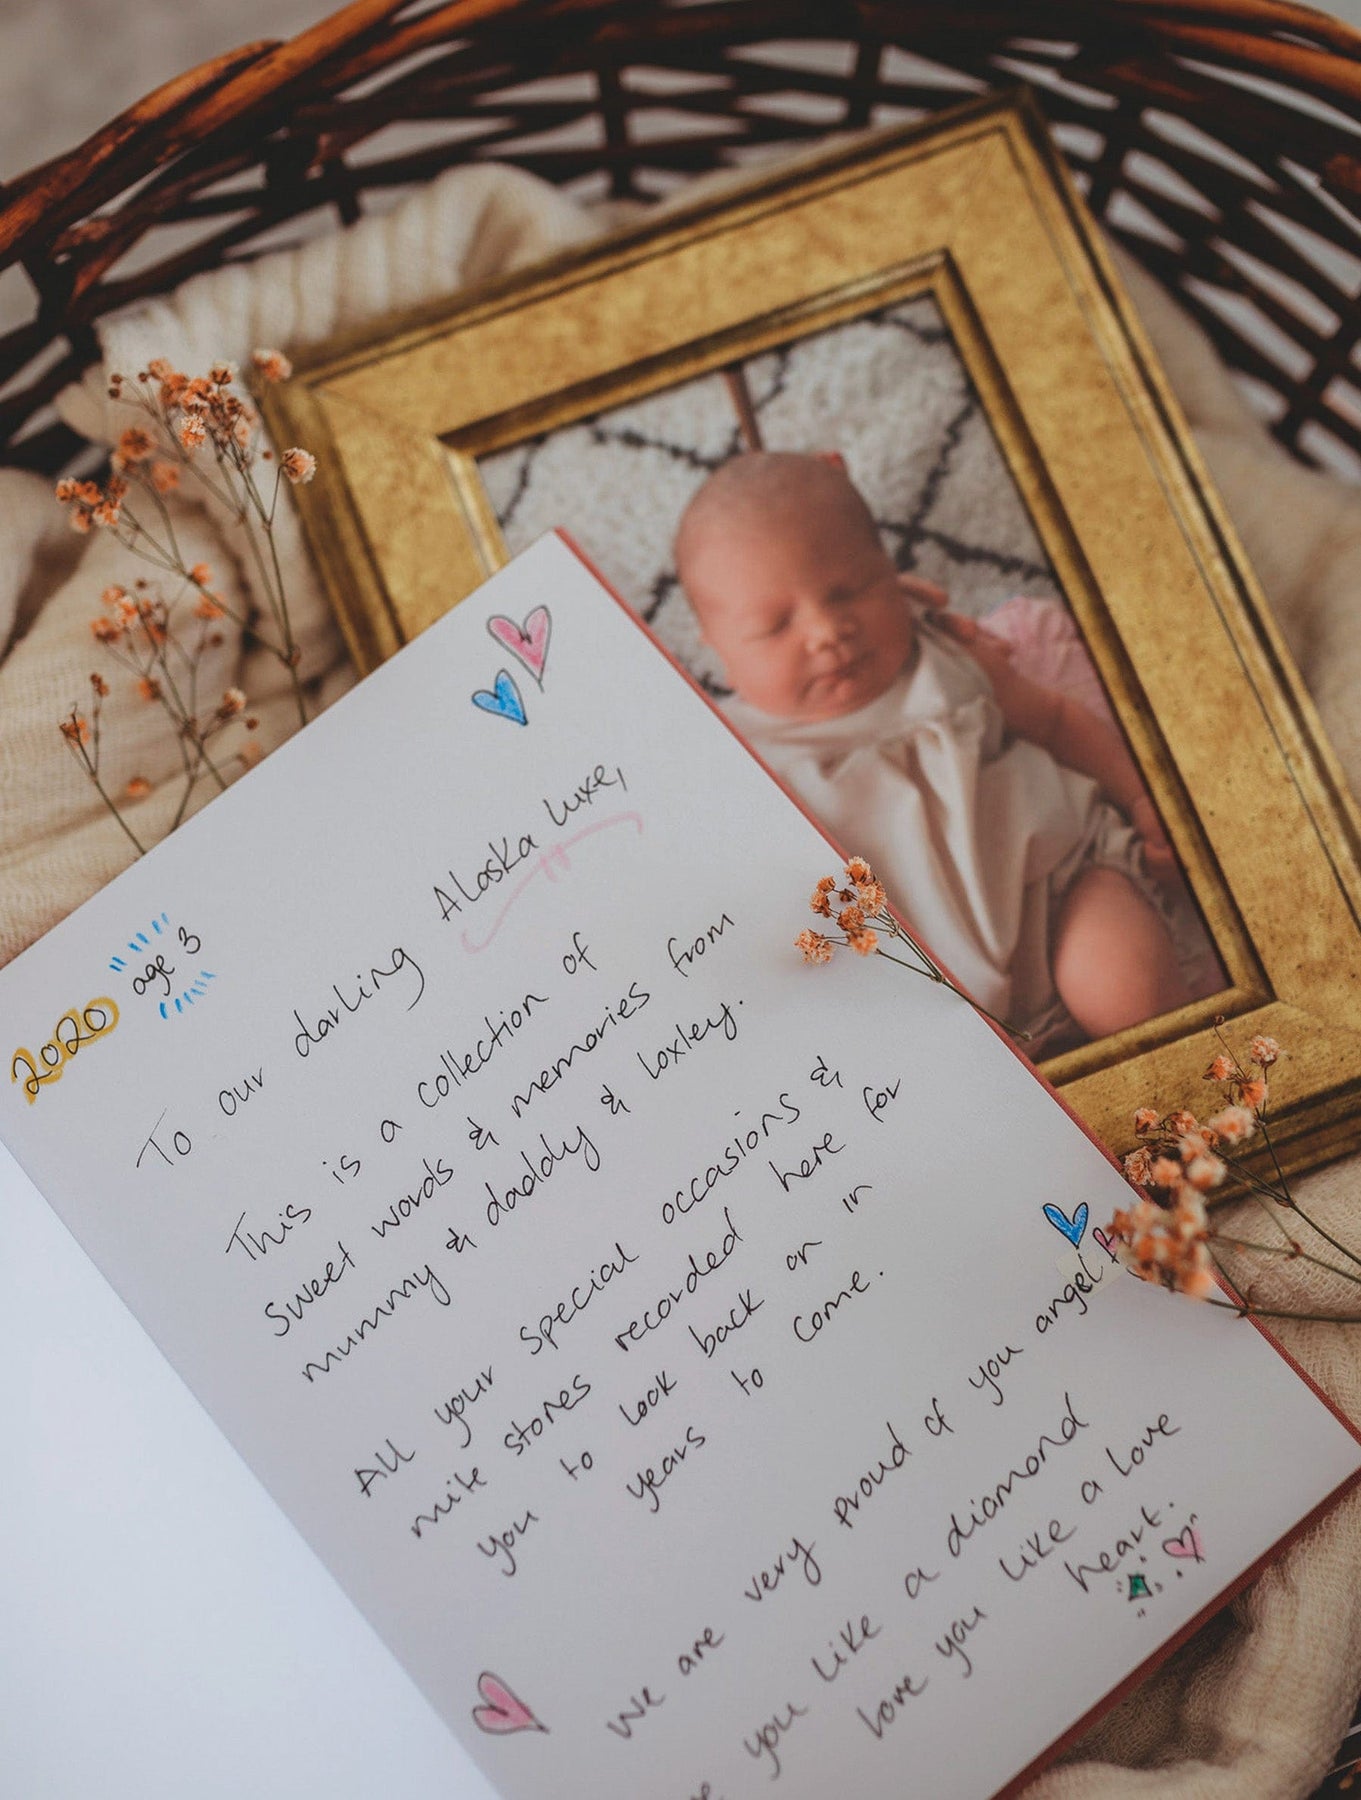 2020 age 3
To our darling Alaska Luxe,
This is a collection of
Sweet words & memories from
mummy & daddy & Loxley.
All your special occasions &
mile stones recorded here for
you to look back on in
years to come.
We are very proud of you angel
you like a diamond
love you like a love
heart.